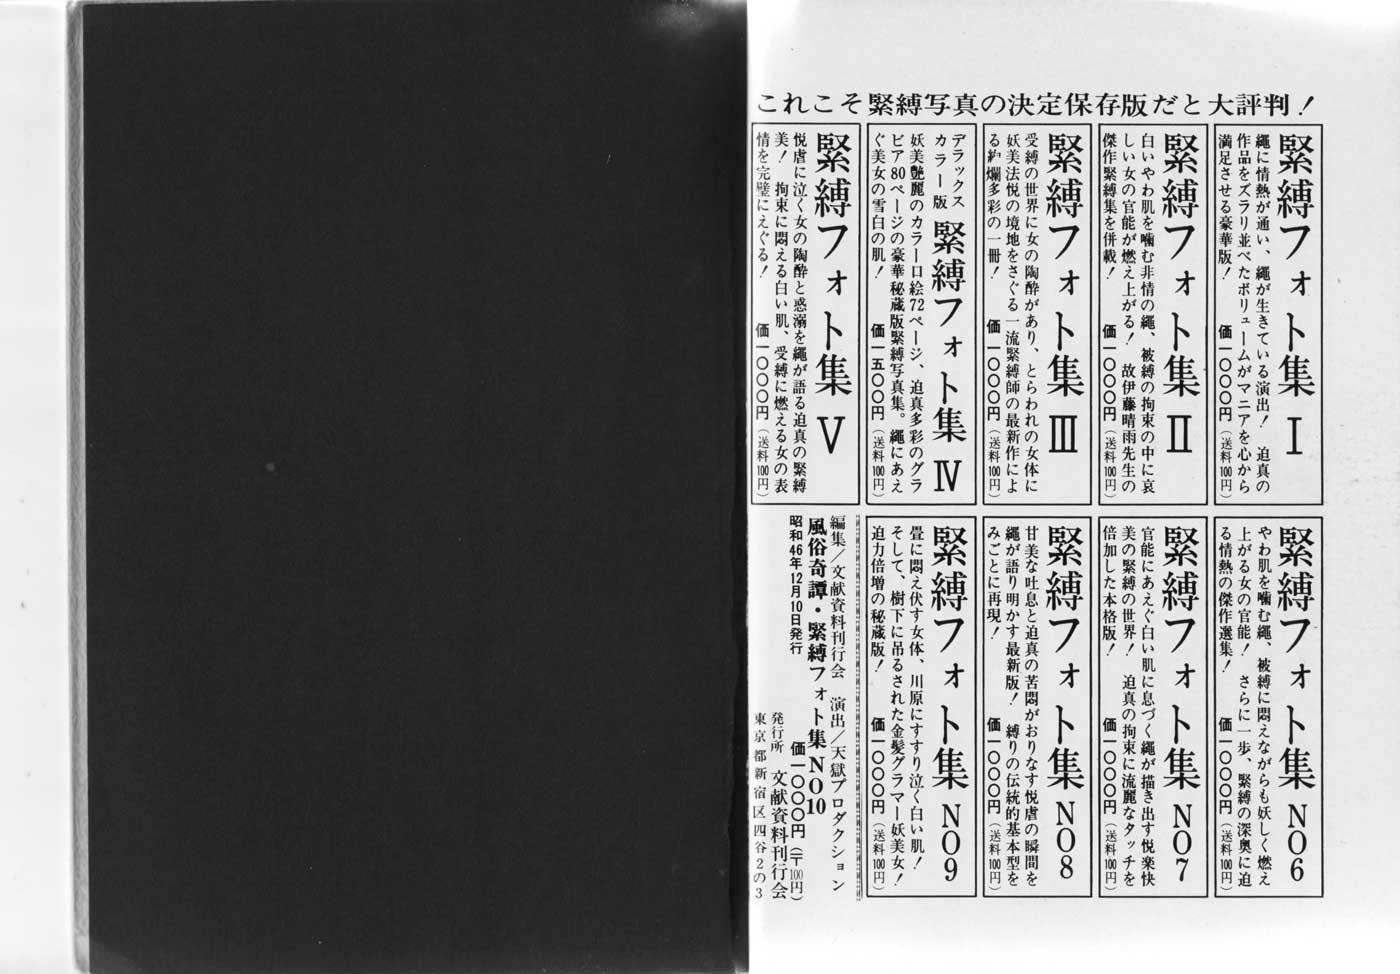 これこそ緊縛写真の決定保存版だと大評判！
緊縛フォト集 Ⅰ
縄に情熱が通い、縄が生きている演出！　迫真の
作品をズラリ並べたボリュームがマニアを心から
満足させる豪華版！
価一〇〇〇円（送料100円）
緊縛フォト集 Ⅱ
白いやわ肌を噛む非情の縄、被縛の拘束の中に哀
しい女の官能が燃え上がる！　故伊藤晴雨先生の
傑作緊縛集を併載！
価一〇〇〇円（送料100円）
緊縛フォト集 Ⅲ
受縛の世界に女の陶酔があり、とらわれの女体に
妖美法悦の境地をさぐる一流緊縛師の最新作によ
る絢爛多彩の一冊！
価一〇〇〇円（送料100円）
デラックス
カラー版
緊縛フォト集 Ⅳ
妖美艶麗のカラー口絵72ページ、迫真多彩のグラ
ビア80ページの豪華秘蔵版緊縛写真集。縄にあえ
ぐ美女の雪白の肌！
価一五〇〇円（送料100円）
緊縛フォト集 Ⅴ
悦虐に泣く女の陶酔と惑溺を縄が語る迫真の緊縛
美！　拘束に悶える白い肌、受縛に燃える女の表
情を完璧にえぐる！
価一〇〇〇円（送料100円）
緊縛フォト集 NO6
やわ肌を噛む縄、被縛に悶えながらも妖しく燃え
上がる女の官能！　さらに一歩、緊縛の深奥に迫
る情熱の傑作選集！
価一〇〇〇円（送料100円）
緊縛フォト集 NO7
官能にあえぐ白い肌に息づく縄が描き出す悦楽快
美の緊縛の世界！　迫真の拘束に流麗なタッチを
倍加した本格版！
価一〇〇〇円（送料100円）
緊縛フォト集 NO8
甘美な吐息と迫真の苦悶がおりなす悦虐の瞬間を
縄が語り明かす最新版！　縛りの伝統的基本型を
みごとに再現！
価一〇〇〇円（送料100円）
緊縛フォト集 NO9
畳に悶え伏す女体、川原にすすり泣く白い肌！
そして、樹下に吊るされた金髪グラマー妖美女！
迫力倍増の秘蔵版！
価一〇〇〇円（送料100円）
編集／文献資料刊行会　演出／天獄プロダクション
風俗奇譚・緊縛フォト集NO10
昭和46年12月10日発行
価一〇〇〇円（〒100円）
発行所　文献資料刊行会
東京都新宿区四谷2の3